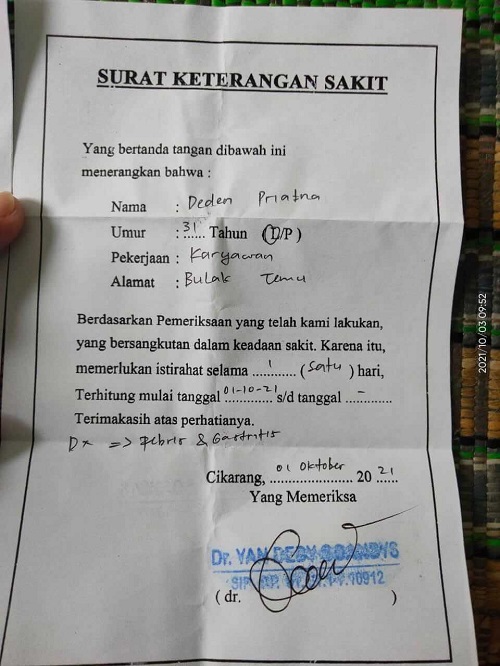 SURAT KETERANGAN SAKIT
Yang bertanda tangan dibawah ini
menerangkan bahwa :
Nama : Deden Priatna
Umur : 31 Tahun (L/P )
Pekerjaan : Karyawan
Alamat : Bulak Temu
Berdasarkan Pemeriksaan yang telah kami lakukan,
yang bersangkutan dalam keadaan sakit. Karena itu,
memerlukan istirahat selama ....1.... ( Satu ) hari,
Terhitung mulai tanggal 01-10-21 s/d tanggal ....-....
Terimakasih atas perhatianya.
Dx => Febris & Gastritis
Cikarang, 01 Oktober 20 21
Yang Memeriksa
Dr. YAN
SIP 10912
( dr. )
2021/10/03 09:52